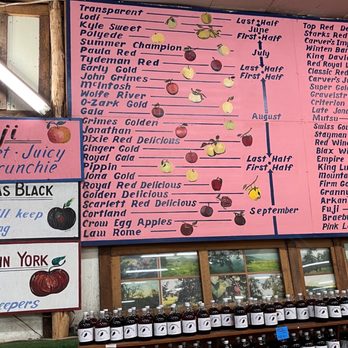 Transparent
Lodi
Kyle Sweet
Polyede
Summer Champion
Paula Red
Tydeman Red
Early Gold
John Grimes
McIntosh
Wolfe River
O-Zark Gold
Gala
Grimes Golden
Jonathan
Dixie Red Delicious
Ginger Gold
Royal Gala
Pippin
Jona Gold
Royal Red Delicious
Golden Delicious
Scarlett Red Delicious
Cortland
Crow Egg Apples
Law Rome
Last Half
June
First Half
July
Last Half
First Half
August
Last Half
First Half
September
Top Red De
Starks Red
Carver's Imp
Winter Ban
King David
Red Royal L
Classic Red
Carver's
Super Gol
Gravelst
Criterion
Late Jon
Mutsu
Swiss Go
Stayman
Red Win
Blax Wi
Empire
King Lu
Mountai
Firm Go
Grann
Arkan
Fuji
Braebu
Pink L
ji
et · Juicy
runchie
as Black
ill keep
ng
in York
eepers